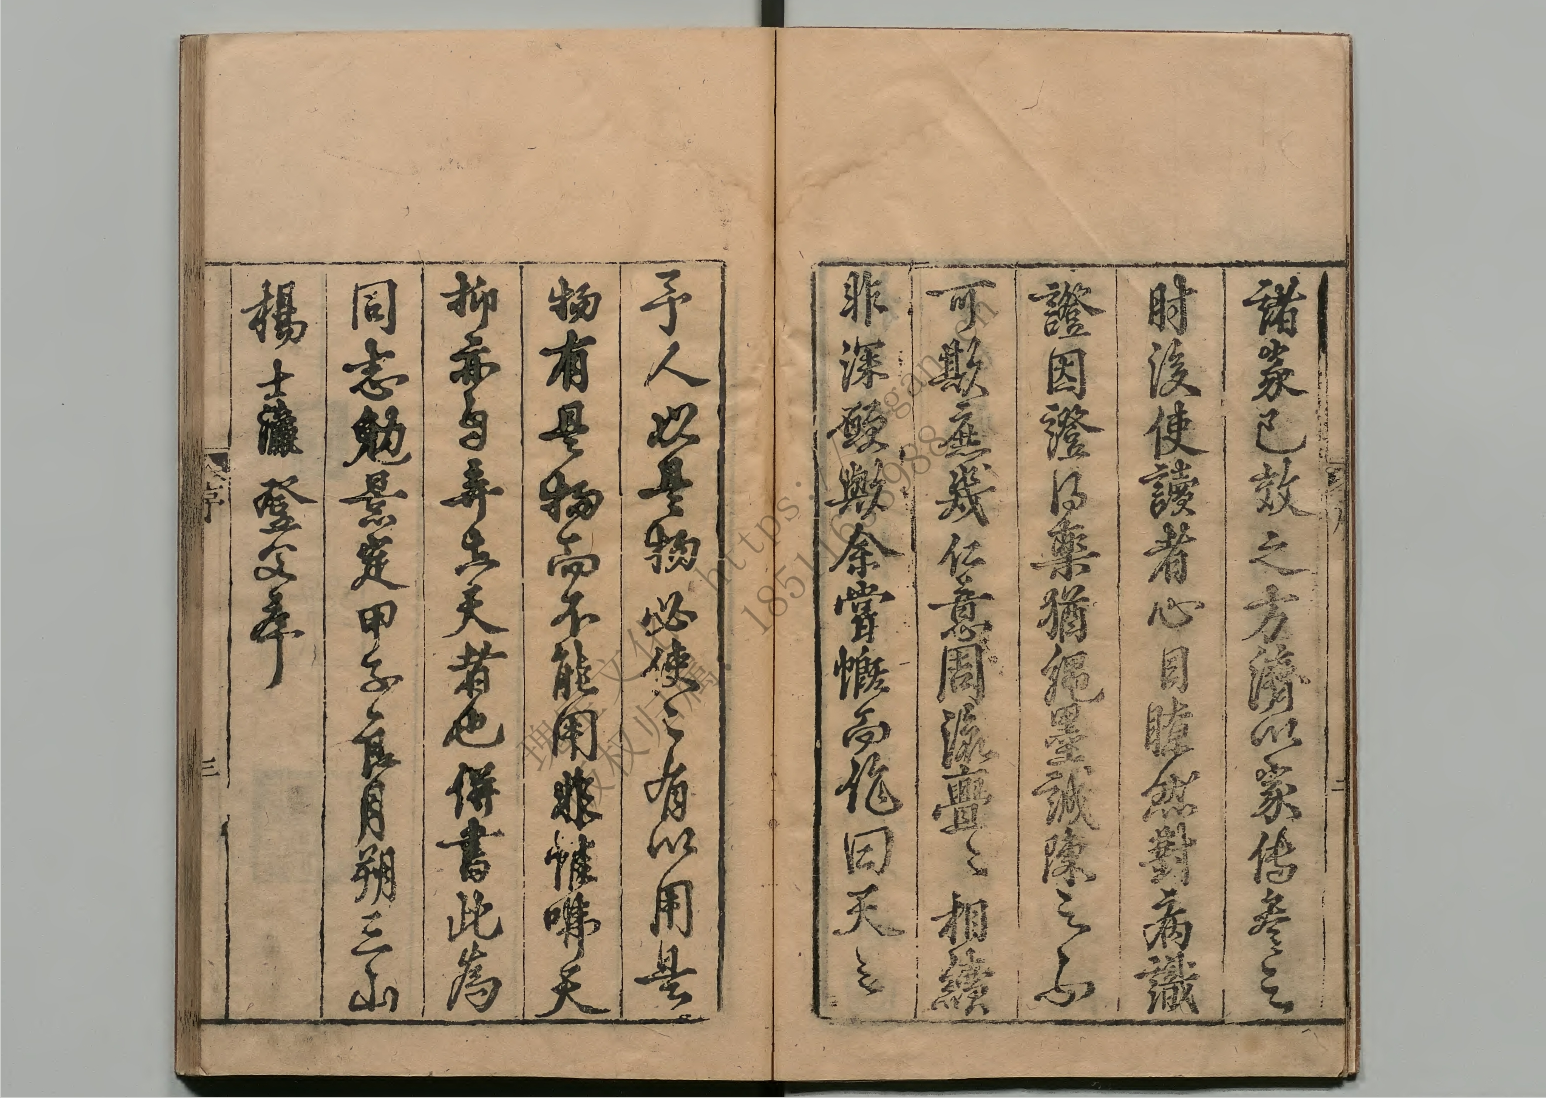 諸家已效之方濟以家傳參之
肘後使讀者心目瞭然對病識
證因證得藥猶繩墨誠陳之不
可欺庶幾仁意周流亹〻相續
非深願歟余嘗慨而作曰天之
予人以是物必使之有以用是
物有是物而不能用非惟咈天
抑亦自弃其天者也併書此為
同志勉景定甲子良月朔三山
楊士瀛登父序
序 三